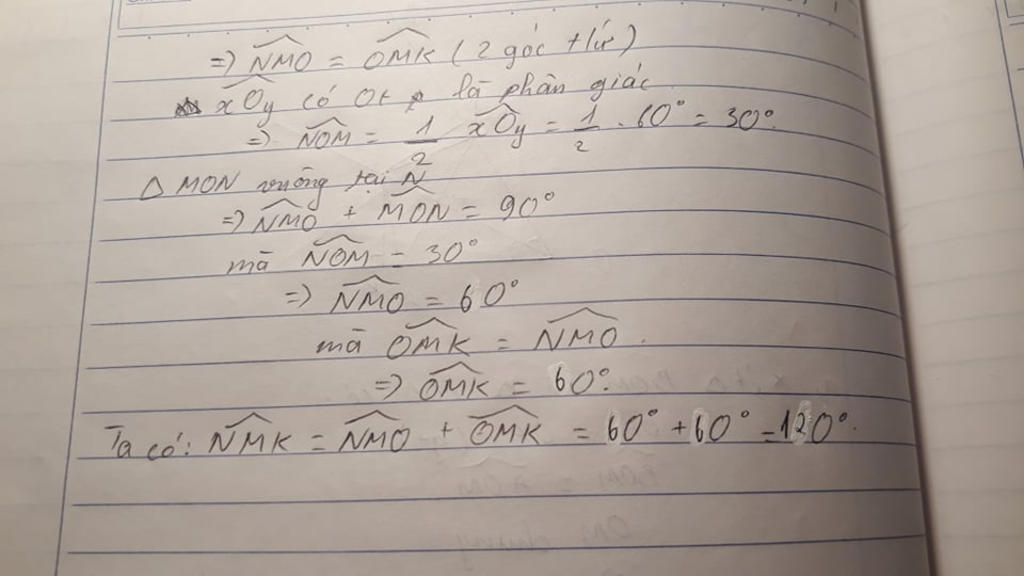 => NMO = OMK (2 góc t/ứ)
xOy có Ot là phân giác
=> NOM = 1/2 xOy = 1/2 . 60° = 30°.
△ MON vuông tại N
=> NMO + MON = 90°
mà NOM = 30°
=> NMO = 60°
mà OMK = NMO.
=> OMK = 60°.
Ta có: NMK = NMO + OMK = 60° + 60° = 120°.